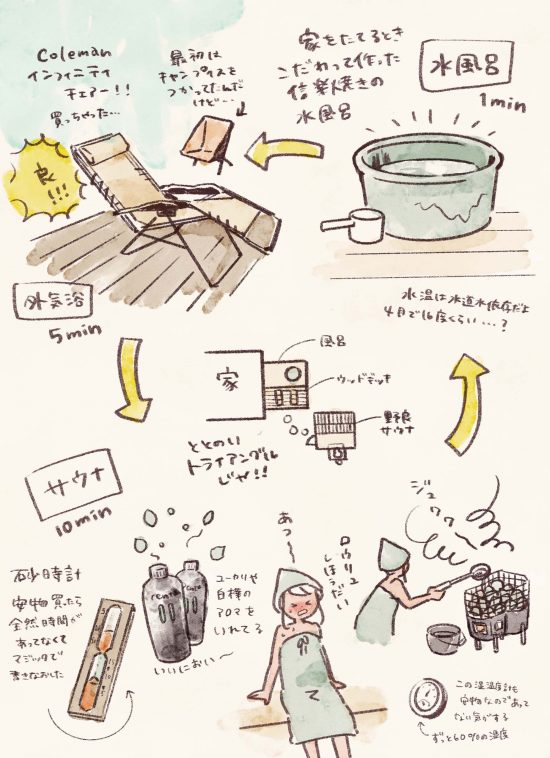 Coleman
インフィニティ
チェアー!!
買っちゃった…
最初は
キャンプイスを
つかってたんだ
けど…
家をたてるとき
こだわって作った
信楽焼きの
水風呂
水風呂
1min
良!!!
外気浴
5min
水温は水道水依存だよ
4月で16度くらい…?
風呂
ウッドデッキ
家
野良
サウナ
ととのい
トライアングル
じゃ!!
サウナ
10min
砂時計
安物買ったら
全然時間が
あってなくて
マジックで
書きなおした
ユーカリや
白樺の
アロマを
いれてる
いいにおい〜
あつ〜
ロウリュ
しほうだい
ジュワワー
この湿温度計も
安物なのであって
ない気がする
ずっと60%の湿度